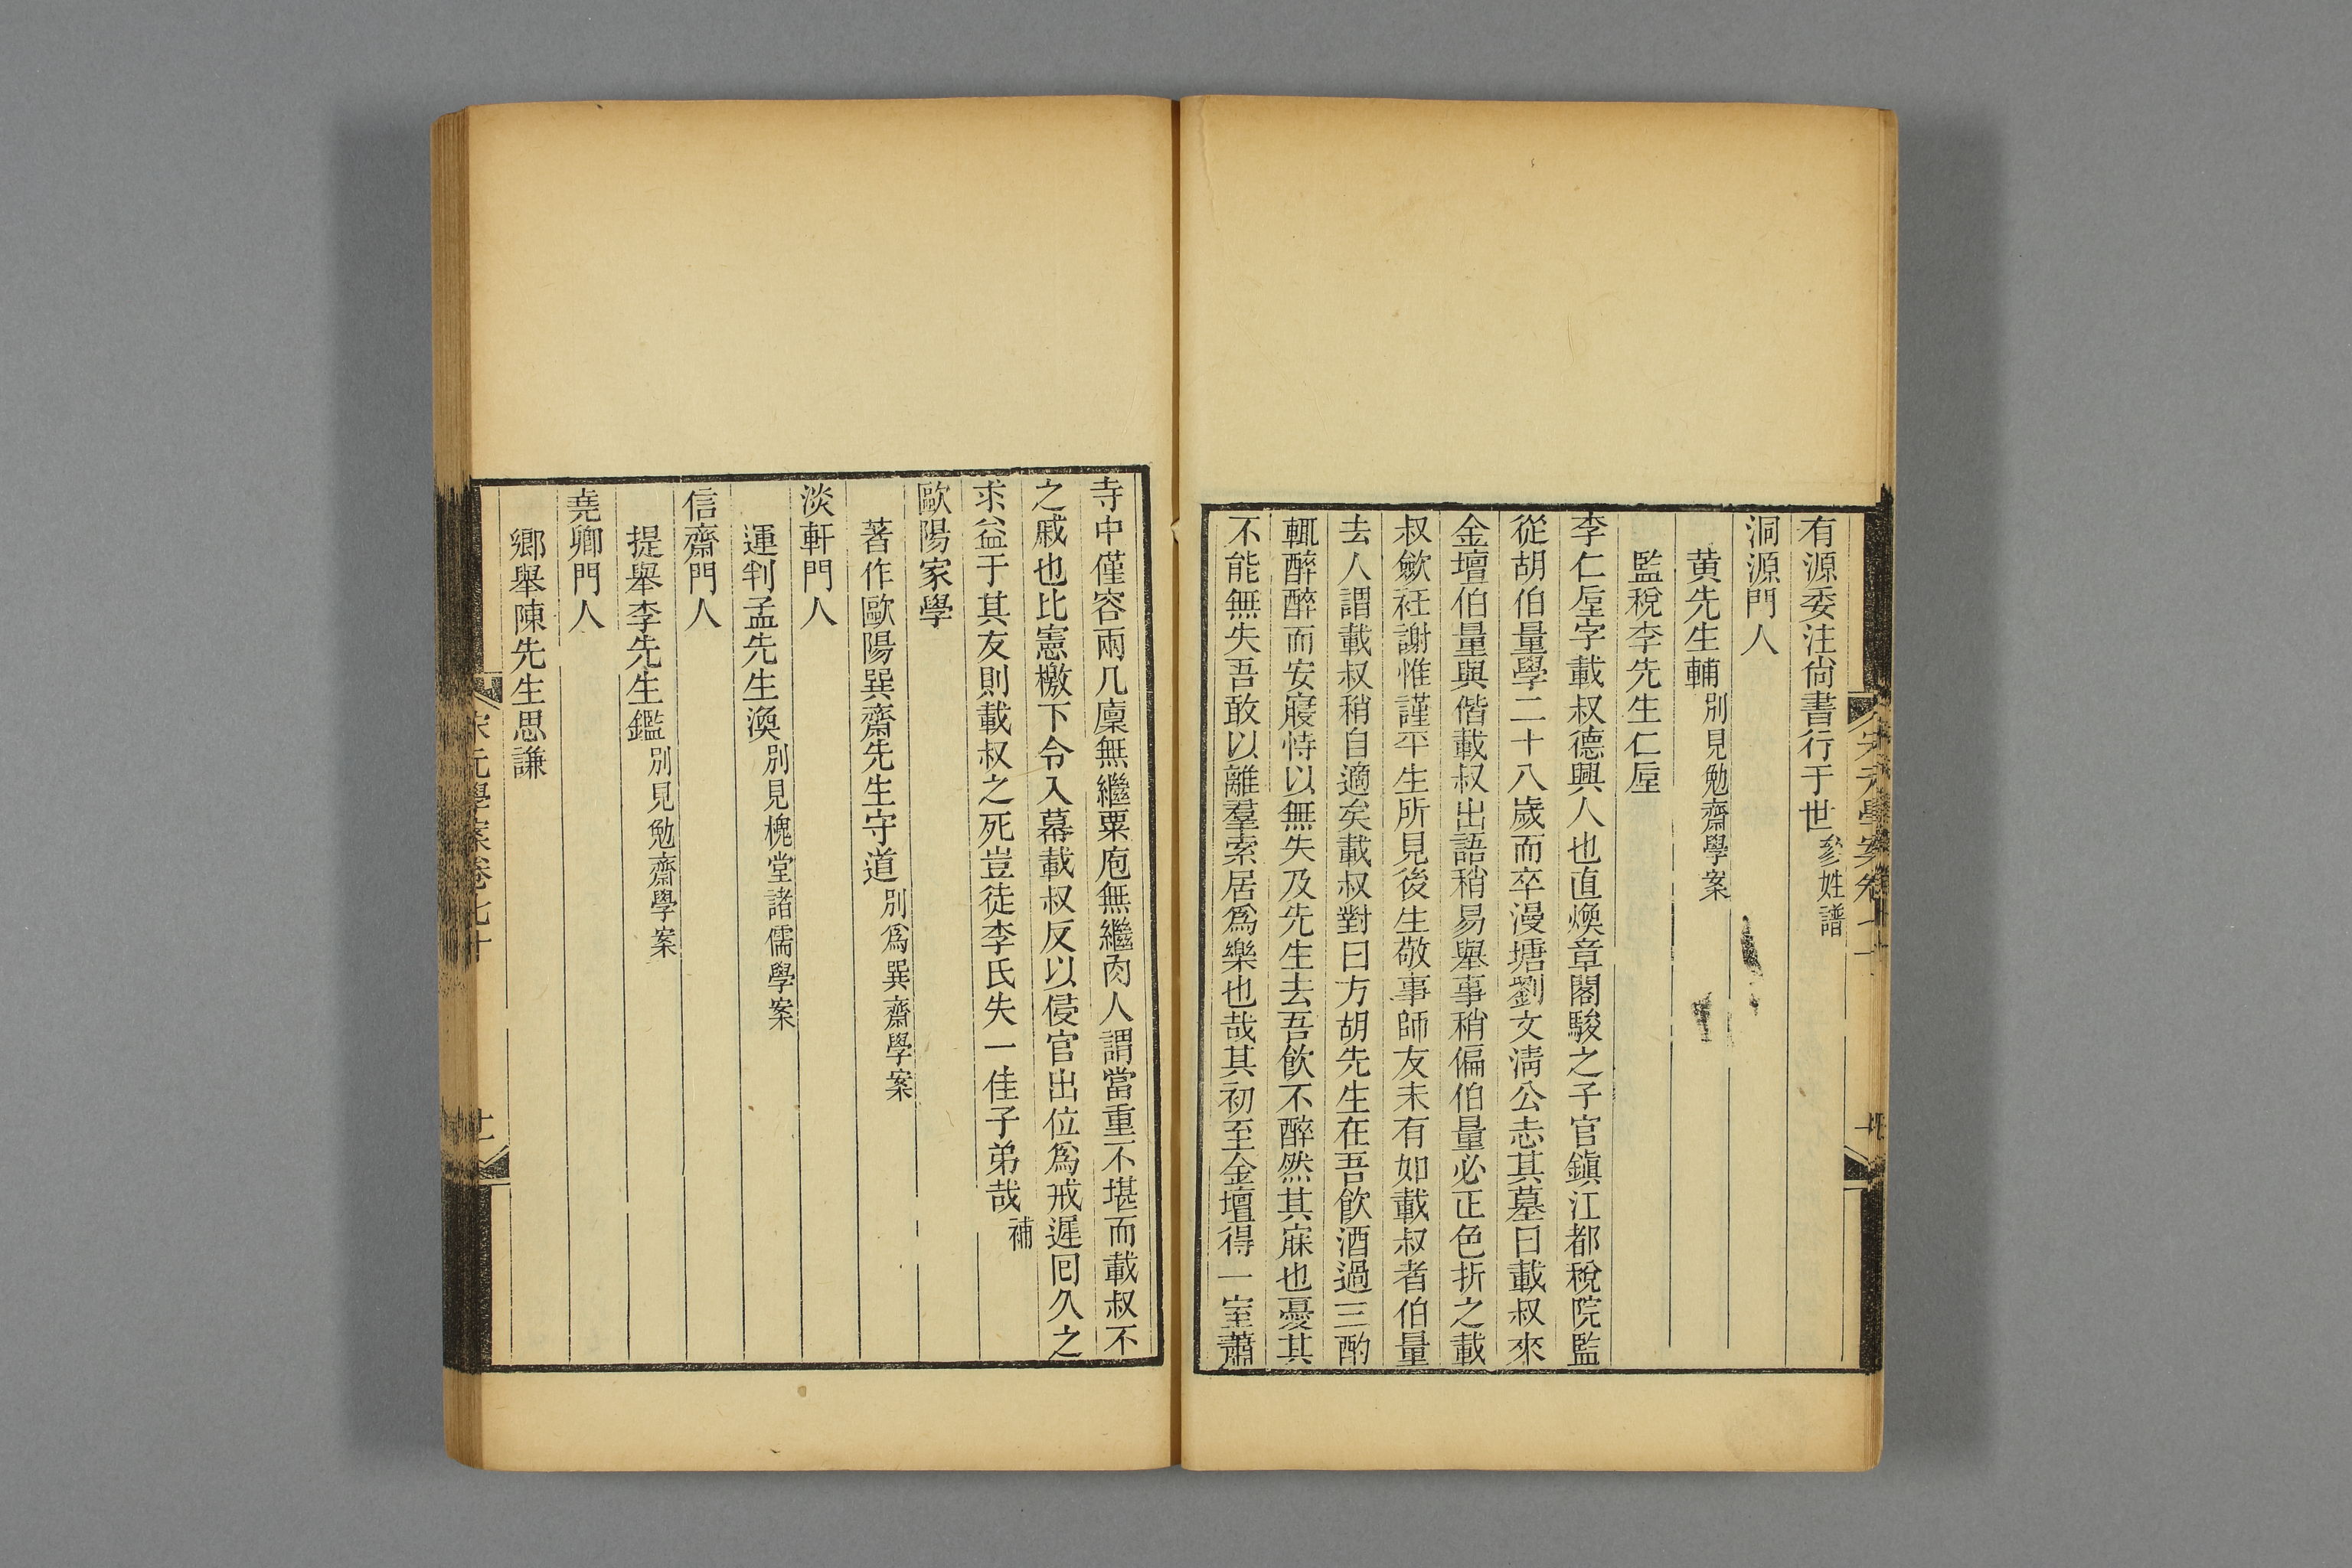 有源委注尙書行于世參姓譜
洞源門人
黃先生輔別見勉齋學案
監稅李先生仁垕
李仁垕字載叔德興人也直煥章閣駿之子官鎭江都稅院監
從胡伯量學二十八歲而卒漫塘劉文淸公志其墓曰載叔來
金壇伯量與偕載叔出語稍易舉事稍偏伯量必正色折之載
叔歛衽謝惟謹平生所見後生敬事師友未有如載叔者伯量
去人謂載叔稍自適矣載叔對曰方胡先生在吾飮酒過三酌
輒醉醉而安寢恃以無失及先生去吾飮不醉然其寐也憂其
不能無失吾敢以離羣索居爲樂也哉其初至金壇得一室蕭
寺中僅容兩几廩無繼粟庖無繼肉人謂當重不堪而載叔不
之戚也比憲檄下令入幕載叔反以侵官出位爲戒遲囘久之
求益于其友則載叔之死豈徒李氏失一佳子弟哉補
歐陽家學
著作歐陽巽齋先生守道別爲巽齋學案
淡軒門人
運判孟先生渙別見槐堂諸儒學案
信齋門人
提舉李先生鑑別見勉齋學案
堯卿門人
鄉舉陳先生思謙
宋元學案卷七十